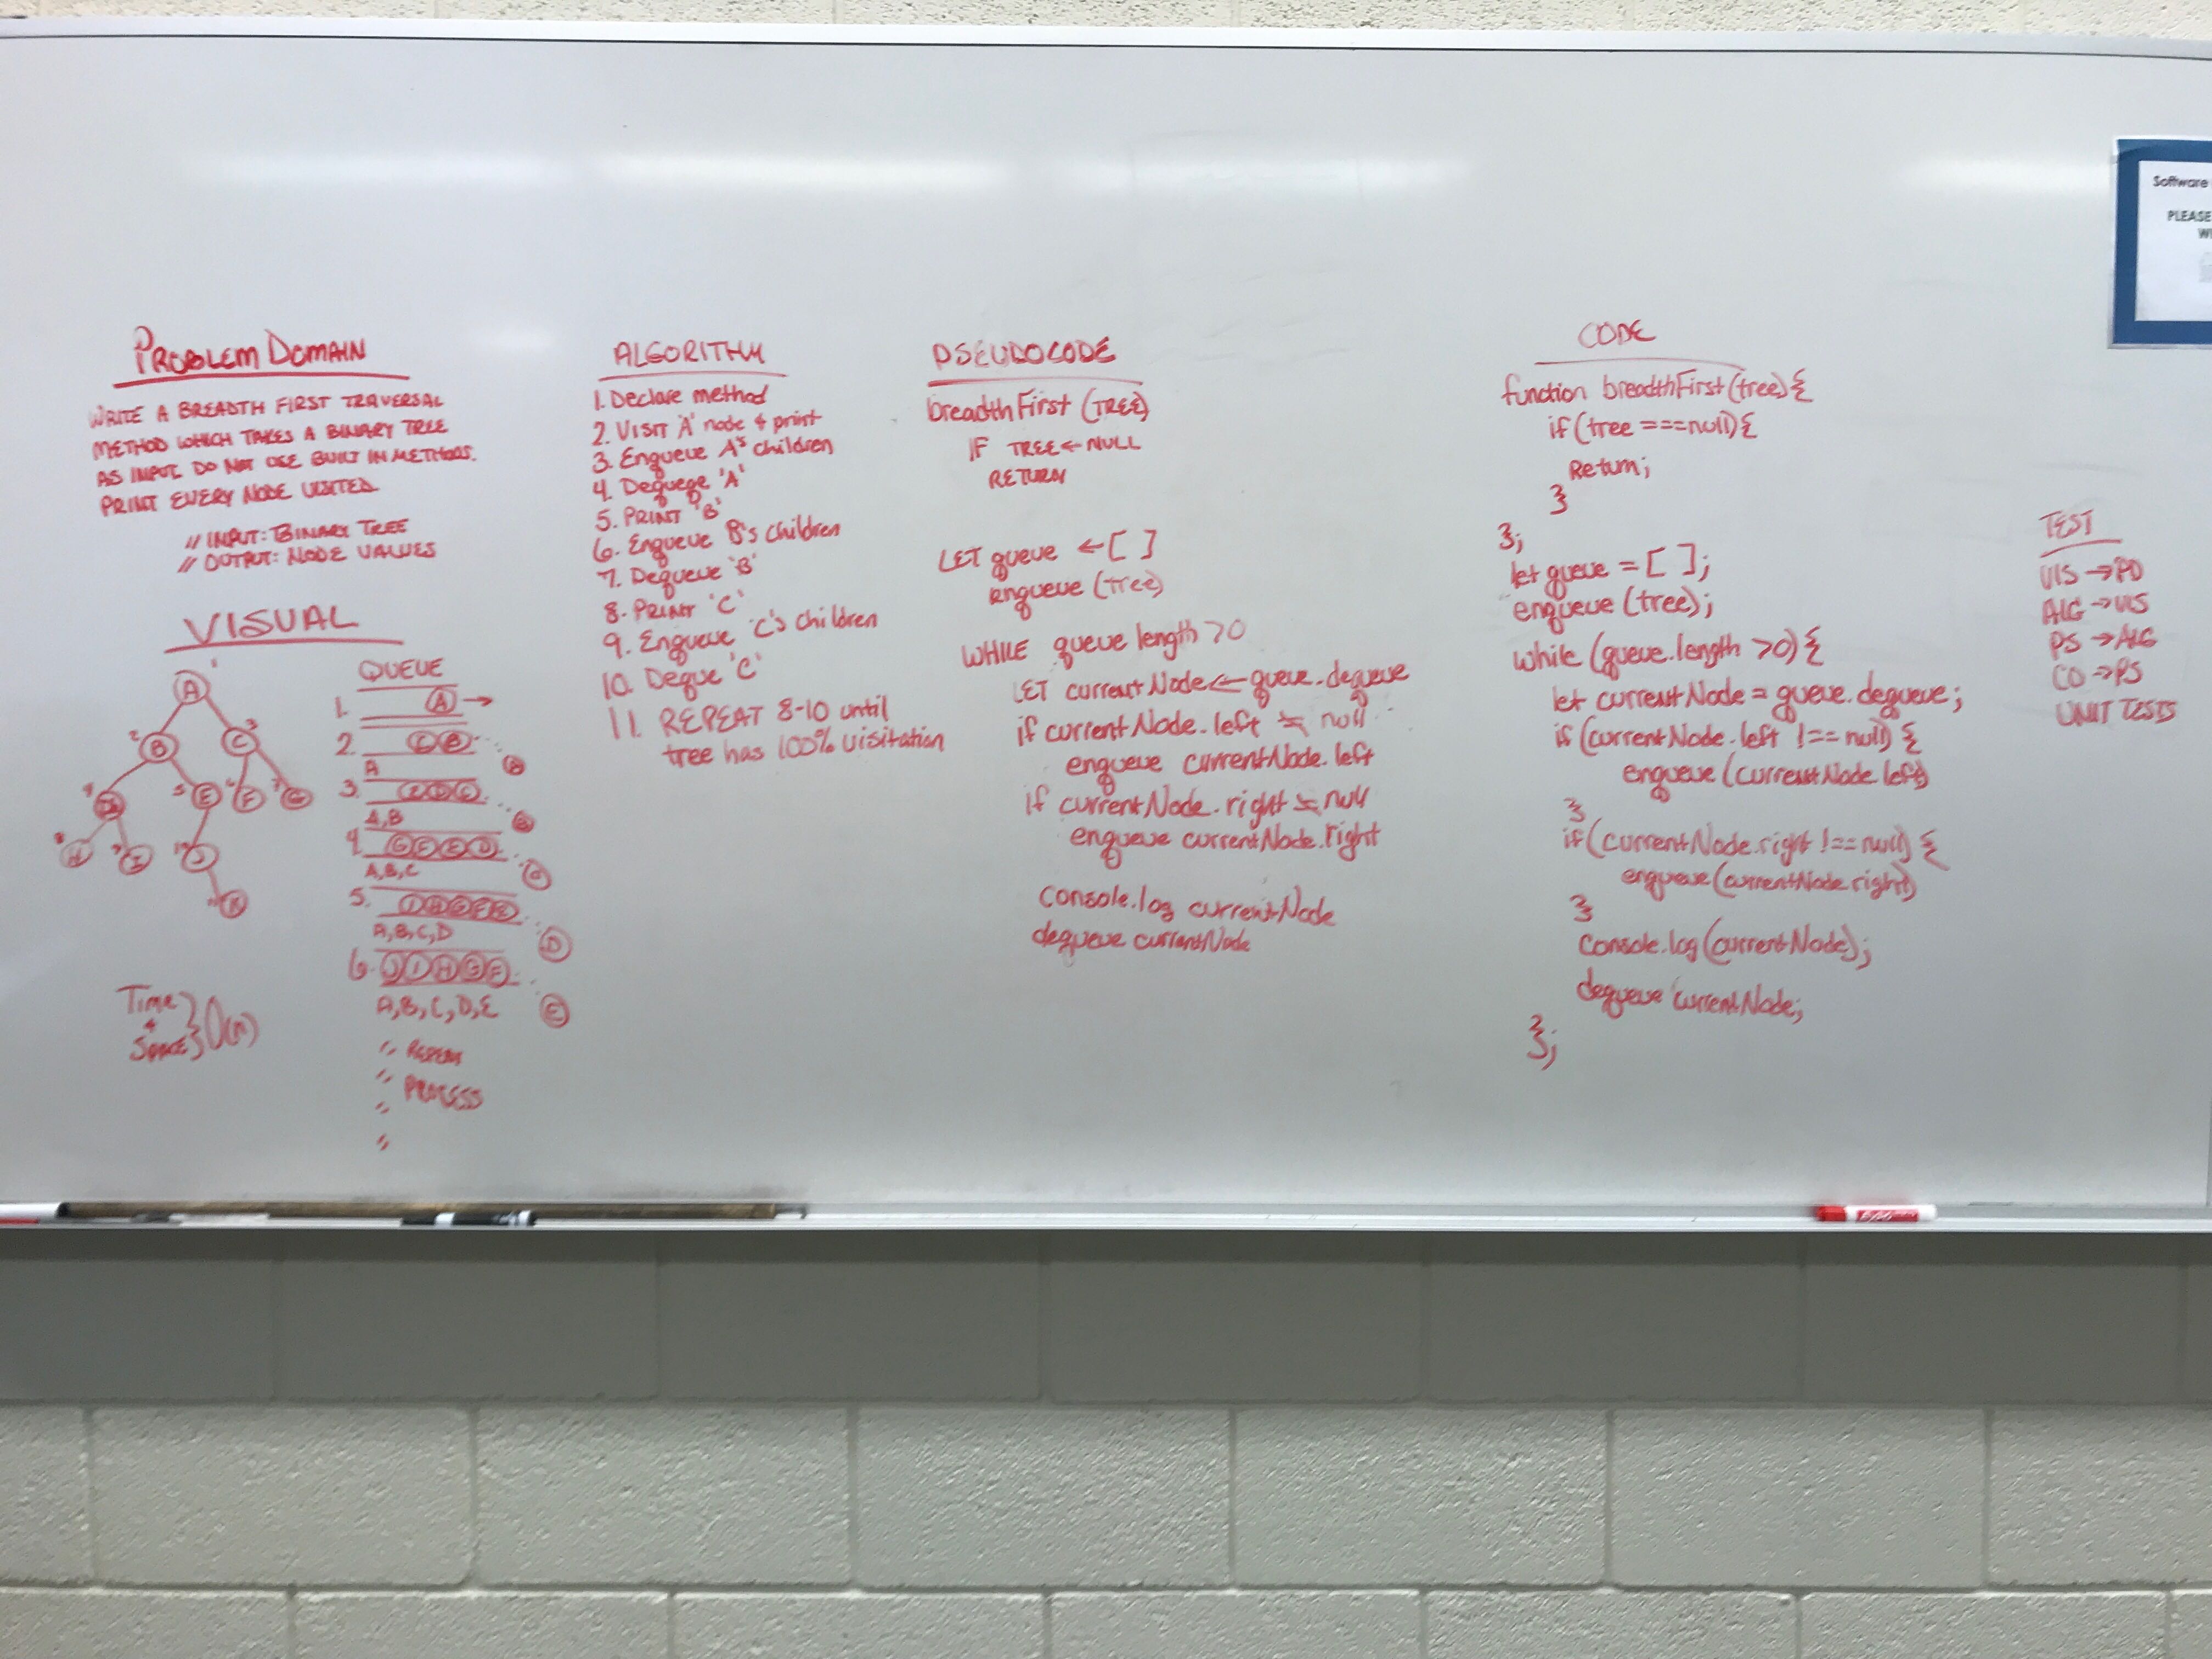 PROBLEM DOMAIN
WRITE A BREADTH FIRST TRAVERSAL
METHOD WHICH TAKES A BINARY TREE
AS INPUT. DO NOT USE BUILT IN METHODS.
PRINT EVERY NODE VISITED
// INPUT: BINARY TREE
// OUTPUT: NODE VALUES
VISUAL
1
A
2 B C 3
4 D 5 E 6 F 7 G
8 H 9 I 10 J
11 K
Time
+
SPACE } O(n)
QUEUE
1. A →
2. C B A
A
3. E D C B
A,B
4. G F E D C
A,B,C
5. I H G F E D
A,B,C,D
6. J I H G F E
A,B,C,D,E
" REPEAT
" PROCESS
"
"
ALGORITHM
1. Declare method
2. VISIT 'A' node & print
3. Enqueue A's children
4. Dequeue 'A'
5. PRINT 'B'
6. Enqueue B's children
7. Dequeue 'B'
8. PRINT 'C'
9. Enqueue 'C's children
10. Deque 'C'
11. REPEAT 8-10 until
tree has 100% visitation
PSEUDOCODE
breadthFirst (TREE)
IF TREE ← NULL
RETURN
LET queue ← [ ]
enqueue (tree)
WHILE queue length > 0
LET currentNode ← queue.dequeue
if currentNode.left ≠ null
enqueue currentNode.left
if currentNode.right ≠ null
enqueue currentNode.right
Console.log currentNode
dequeue currentNode
CODE
function breadthFirst(tree){
if(tree === null){
Return;
}
};
let queue = [ ];
enqueue (tree);
while (queue.length > 0) {
let currentNode = queue.dequeue;
if(currentNode.left !== null) {
enqueue (currentNode.left)
}
if(currentNode.right !== null) {
enqueue(currentNode.right)
}
Console.log(currentNode);
dequeue currentNode;
};
TEST
VIS → PD
ALG → VIS
PS → ALG
CO → PS
UNIT TESTS
Software
PLEASE
EXPO